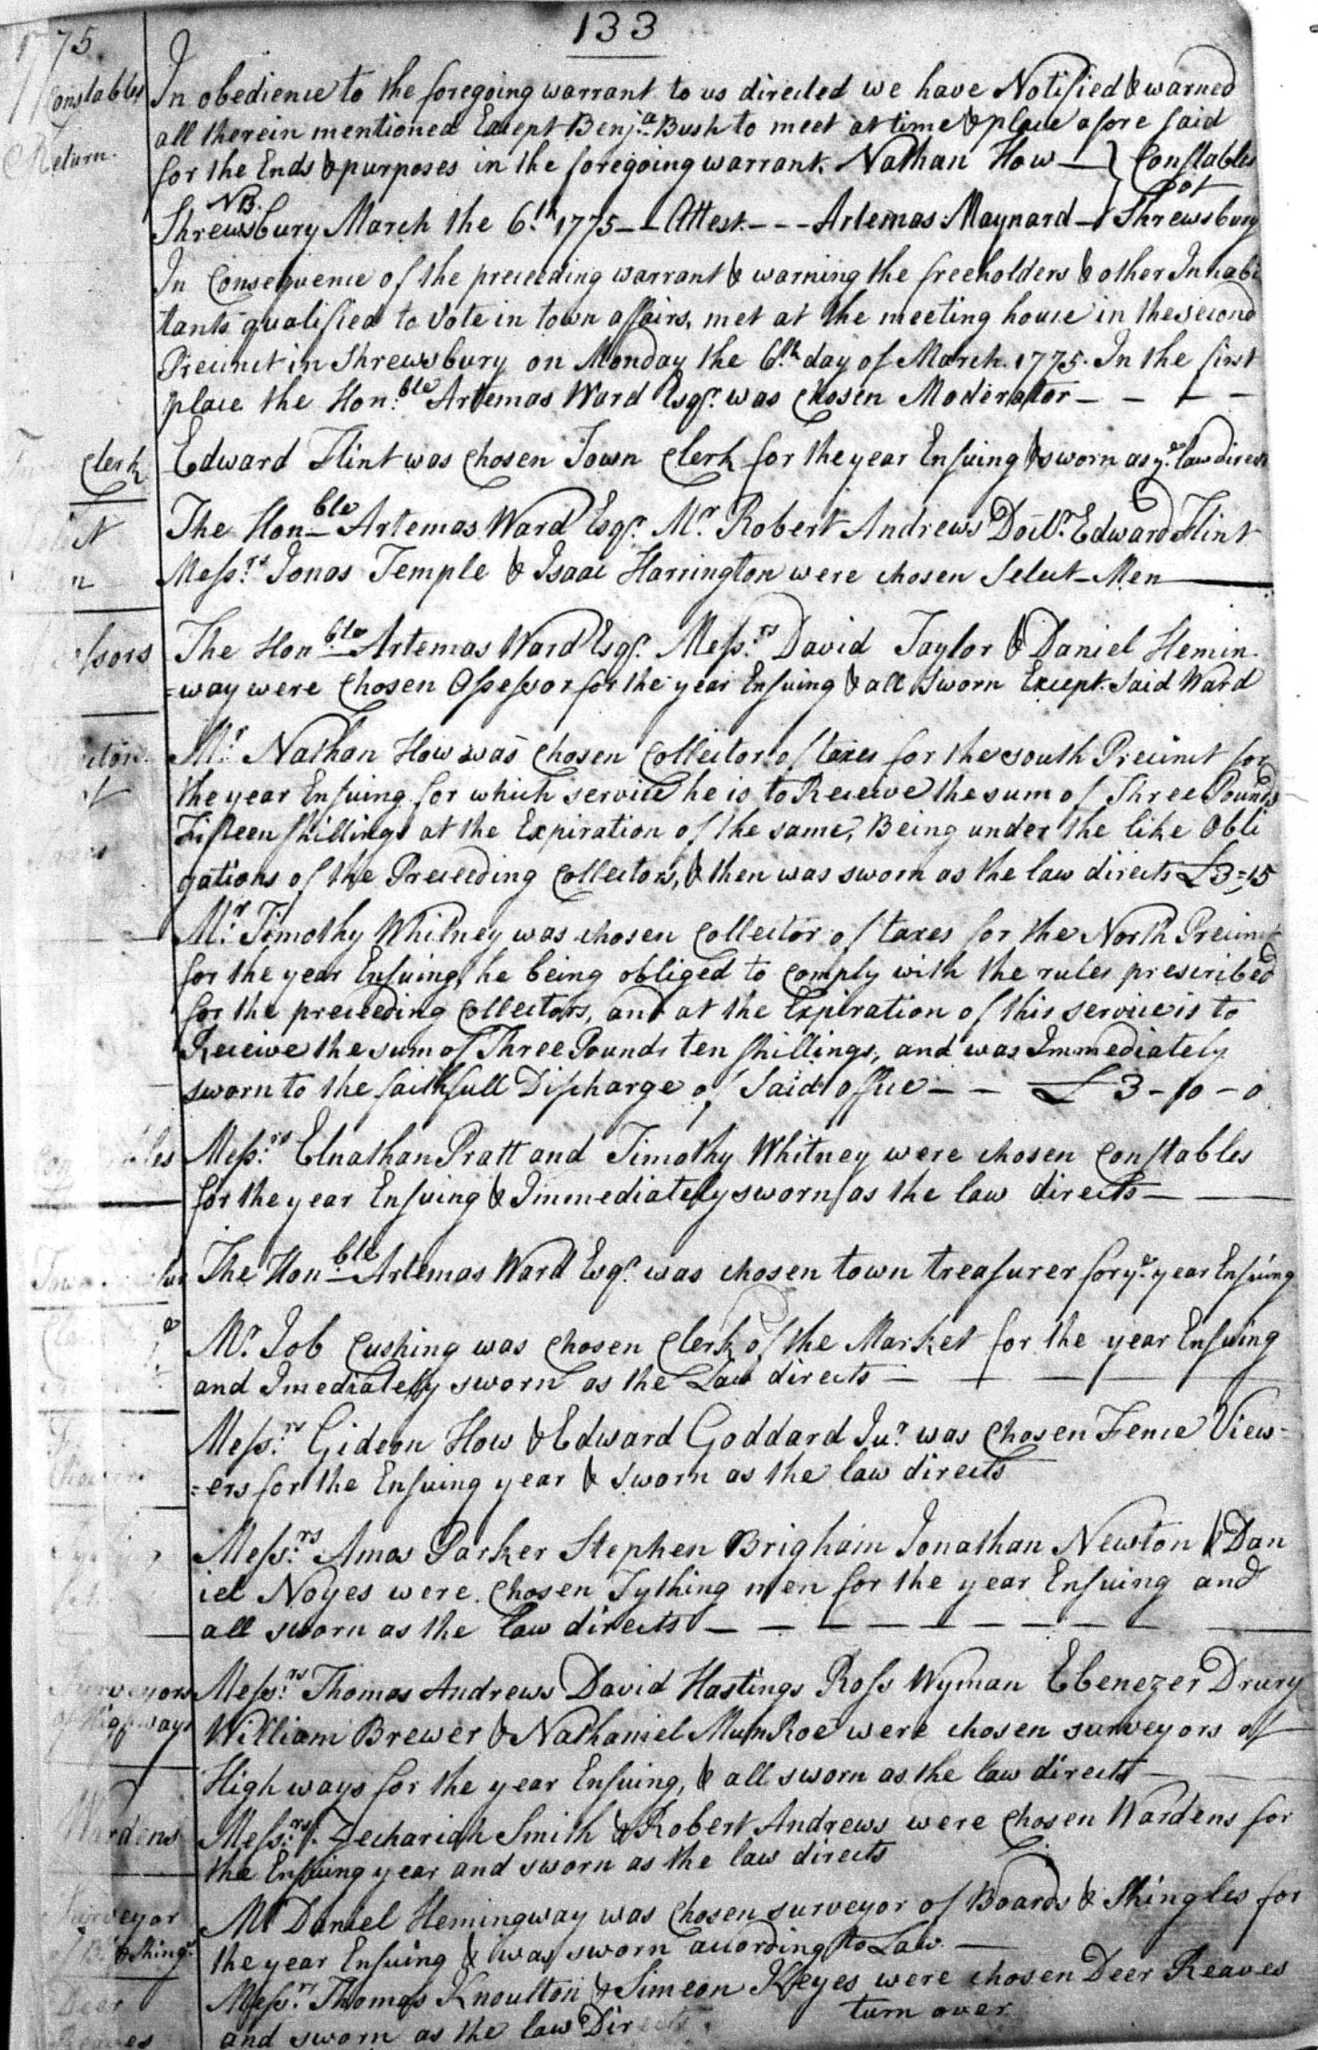 133
1775
Constables
Return.
In obedience to the foregoing warrant to us directed we have Notified & warned
all therein mentioned Except Benja Bush to meet at time & place afore said
for the Ends & purposes in the foregoing warrant. Nathan How — } Constables
NB. of
Shrewsbury March the 6th 1775 — Attest. - - - Artemas Maynard — } Shrewsbury
In Consequence of the preceeding warrant & warning the freeholders & other Inhabi
tants qualified to Vote in town affairs, met at the meeting house in the second
Precinct in Shrewsbury on Monday the 6th day of March. 1775. In the first
place the Honble Artemas Ward Esqr. was chosen Moderator - - - -
Clerk
Edward Flint was chosen Town Clerk for the year Ensuing & sworn as ye law direct
The Honble Artemas Ward Esqr. Mr Robert Andrews Doctr. Edward Flint
Messrs Jonas Temple & Isaac Harrington were chosen Select-Men
essors
The Honble Artemas Ward Esqr. Messrs David Taylor & Daniel Hemin-
=way were chosen Assessor for the year Ensuing & all sworn Except said Ward
Mr Nathan How was chosen Collector of taxes for the south Precinct for
the year Ensuing for which service he is to Receive the sum of Three Pounds
Fifteen shillings at the Expiration of the same, Being under the like Obli
gations of the Preceeding Collectors, & then was sworn as the law directs £3=15
Mr. Timothy Whitney was chosen Collector of taxes for the North Precinct
for the year Ensuing, he being obliged to comply with the rules prescribed
for the preceeding Collectors, and at the Expiration of this service is to
Receive the sum of Three Pounds ten shillings, and was Immediately
sworn to the faithfull Discharge of said office - - £ 3 - 10 - 0
Messrs Elnathan Pratt and Timothy Whitney were chosen Constables
for the year Ensuing & Immediately sworn as the law directs —
The Honble Artemas Ward Esqr. was chosen town treasurer for ye year Ensuing
Mr Job Cushing was chosen Clerk of the Market for the year Ensuing
and Imediately sworn as the Law directs — — — — —
Messrs Gideon How & Edward Goddard Jur was chosen Fence View-
=ers for the Ensuing year & sworn as the law directs
Messrs Amos Parker Stephen Brigham Jonathan Newton & Dan
iel Noyes were chosen Tything men for the year Ensuing and
all sworn as the law directs — — — — — — — —
Surveyors
of Highways
Messrs Thomas Andrews David Hastings Ross Wyman Ebenezer Drury
William Brewer & Nathaniel MunRoe were chosen surveyors of
High ways for the year Ensuing, & all sworn as the law directs —
Wardens
Messrs. Zechariah Smith & Robert Andrews were chosen Wardens for
the Ensuing year and sworn as the law directs
Surveyor
Mr Daniel Hemingway was chosen surveyor of Boards & Shingles for
the year Ensuing & was sworn according to Law —
Deer
Reaves
Messrs Thomas Knoulton & Simeon Keyes were chosen Deer Reaves
and sworn as the law Directs. turn over